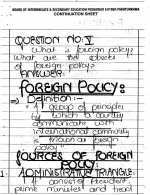 BOARD OF INTERMEDIATE & SECONDARY EDUCATION PESHAWAR KHYBER PAKHTUNKHWA
CONTINUATION SHEET
QUESTION NO: V
What is foreign policy?
What are the sources
of foreign policy?
ANSWER:
FOREIGN POLICY:
Definition:-
A group of principles
by which a country
communicate with
international community
is known as foreign
policy.
SOURCES OF FOREIGN
POLICY:
1. ADMINISTRATIVE TRIANGLE:
It consist of President,
prime minister and head